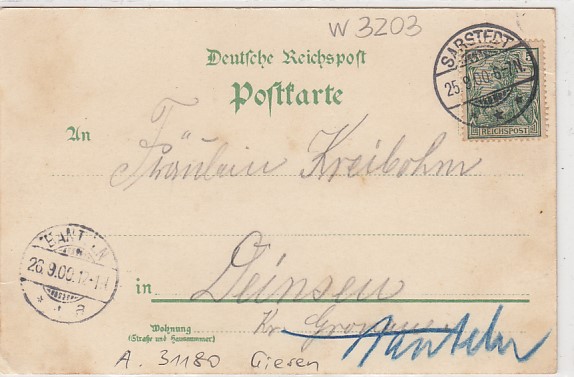 W 3203
Deutsche Reichspost
Postkarte
SARSTEDT
25.9.00.6-7N.
* * a
5
REICHSPOST
An
Fräulein Kreibohm
BANTELN
26.9.00.12-1N
* * a
in
Deinsen
Kr. Gronau
Banteln
Wohnung
(Straße und Hausnummer)
A. 31180 Giesen